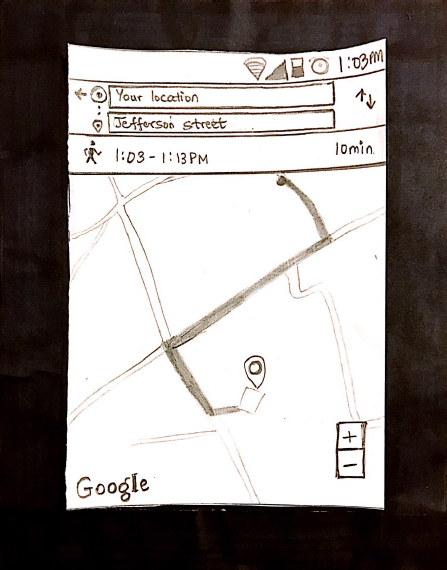 1:03PM
Your location
Jefferson street
1:03 - 1:13PM
10min.
+
−
Google